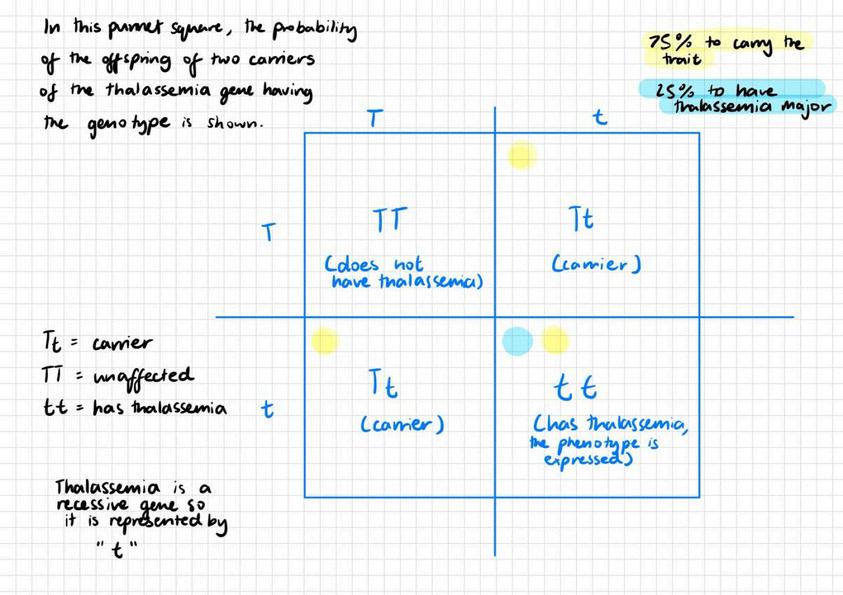 In this punnet square, the probability
of the offspring of two carriers
of the thalassemia gene having
the genotype is shown.
75% to carry the
trait
25% to have
thalassemia major
T
t
T
TT
(does not
have thalassemia)
Tt
(carrier)
Tt = carrier
TT = unaffected
tt = has thalassemia
t
Tt
(carrier)
tt
(has thalassemia,
the phenotype is
expressed)
Thalassemia is a
recessive gene so
it is represented by
"t"